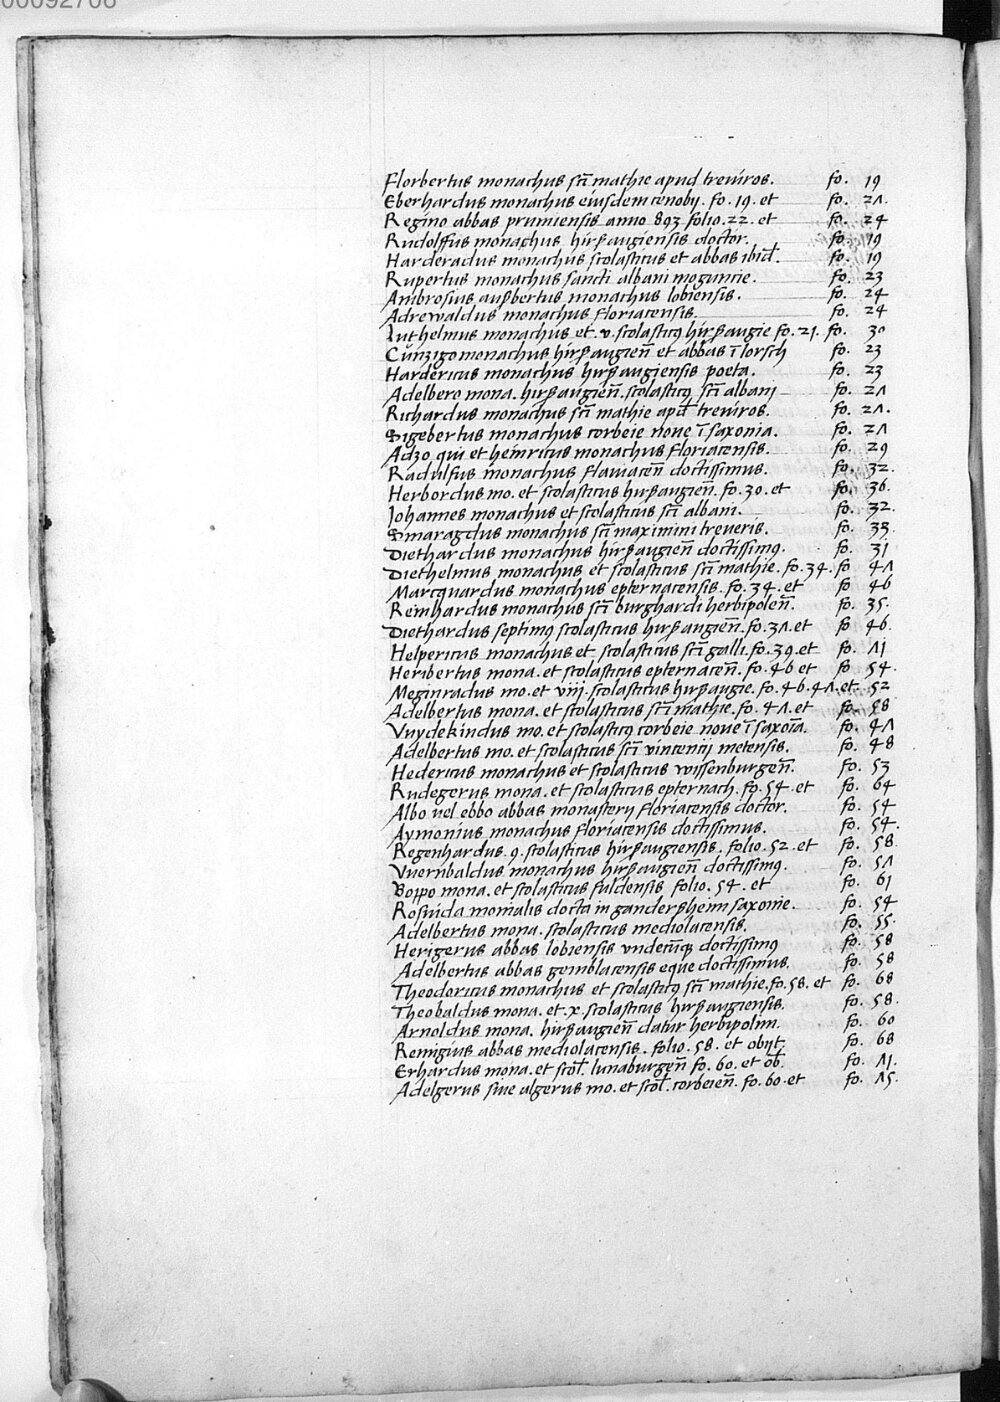 00092706
Florbertus monachus scti mathie apud treuiros. fo. 19
Eberhardus monachus eiusdem cenobij. fo. 19. et fo. 27.
Regino abbas prumiensis anno 893 folio. 22. et fo. 24
Rudolffus monachus hirsaugiensis doctor. fo. 19
Harderadus monachus scolasticus et abbas ibid. fo. 19
Rupertus monachus sancti albani moguncie. fo. 23
Ambrosius ausbertus monachus lobiensis. fo. 24
Adrewaldus monachus floriacensis. fo. 24
Luthelmus monachus et. v. scolasticus hirsaugie fo. 21. fo. 30
Cunzigo monachus hirsaugien̄ et abbas ī lorsch fo. 23
Hardericus monachus hirsaugiensis poeta. fo. 23
Adelbero mona. hirsaugien̄. scolasticus scti albani fo. 27
Richardus monachus scti mathie apd treuiros. fo. 27.
Sigebertus monachus corbeie noue ī saxonia. fo. 27
Adzo qui et heinricus monachus floriacensis. fo. 29
Radulfus monachus flauiacen̄ doctissimus. fo. 32.
Herbordus mo. et scolasticus hirsaugien̄. fo. 30. et fo. 36.
Johannes monachus et scolasticus scti albani. fo. 32.
Smaragdus monachus scti maximini treueris. fo. 33.
Diethardus monachus hirsaugien̄ doctissimus. fo. 31
Diethelmus monachus et scolasticus scti mathie. fo. 34. fo 47
Marcquardus monachus epternacensis. fo. 34. et fo 46
Reinhardus monachus scti burghardi herbipolen̄. fo. 35.
Diethardus septimus scolasticus hirsaugien̄. fo. 37. et fo 46.
Helpericus monachus et scolasticus scti galli. fo. 39. et fo. 71
Heribertus mona. et scolasticus epternacen̄. fo. 46 et fo 54.
Meginradus mo. et viii. scolasticus hirsaugie. fo. 46. 47. et. 52
Adelbertus mona. et scolasticus scti mathie. fo. 47. et fo. 58
Vuydekindus mo. et scolasticus corbeie noue ī saxoīa. fo. 47
Adelbertus mo. et scolasticus scti vincentij metensis. fo. 48
Hedericus monachus et scolasticus wissenburgen̄. fo. 53
Rudegerus mona. et scolasticus epternach. fo. 54. et fo. 64
Albo uel ebbo abbas monasterij floriacensis doctor. fo. 54
Aymonius monachus floriacensis doctissimus. fo. 54.
Regenhardus. 9. scolasticus hirsaugiensis. folio. 52. et fo. 58.
Vuernbaldus monachus hirsaugien̄ doctissimus. fo. 57
Boppo mona. et scolasticus fuldensis folio. 54. et fo. 61
Rosuida monialis docta in gandersheim saxonie. fo. 54
Adelbertus mona. scolasticus mediolacensis. fo. 55.
Herigerus abbas lobiensis vndecūq doctissimus fo. 58
Adelbertus abbas gemblacensis eque doctissimus. fo. 58
Theodericus monachus et scolasticus scti mathie. fo. 58. et fo. 68
Theobaldus mona. et. x. scolasticus hirsaugiensis. fo. 58.
Arnoldus mona. hirsaugien̄ datur herbipolim. fo. 60
Remigius abbas mediolacensis. folio. 58. et obijt. fo. 68
Erhardus mona. et scol. lunaburgen̄ fo. 60. et ob. fo. 71.
Adelgerus siue algerus mo. et scol. corbeien̄. fo. 60. et fo. 75.